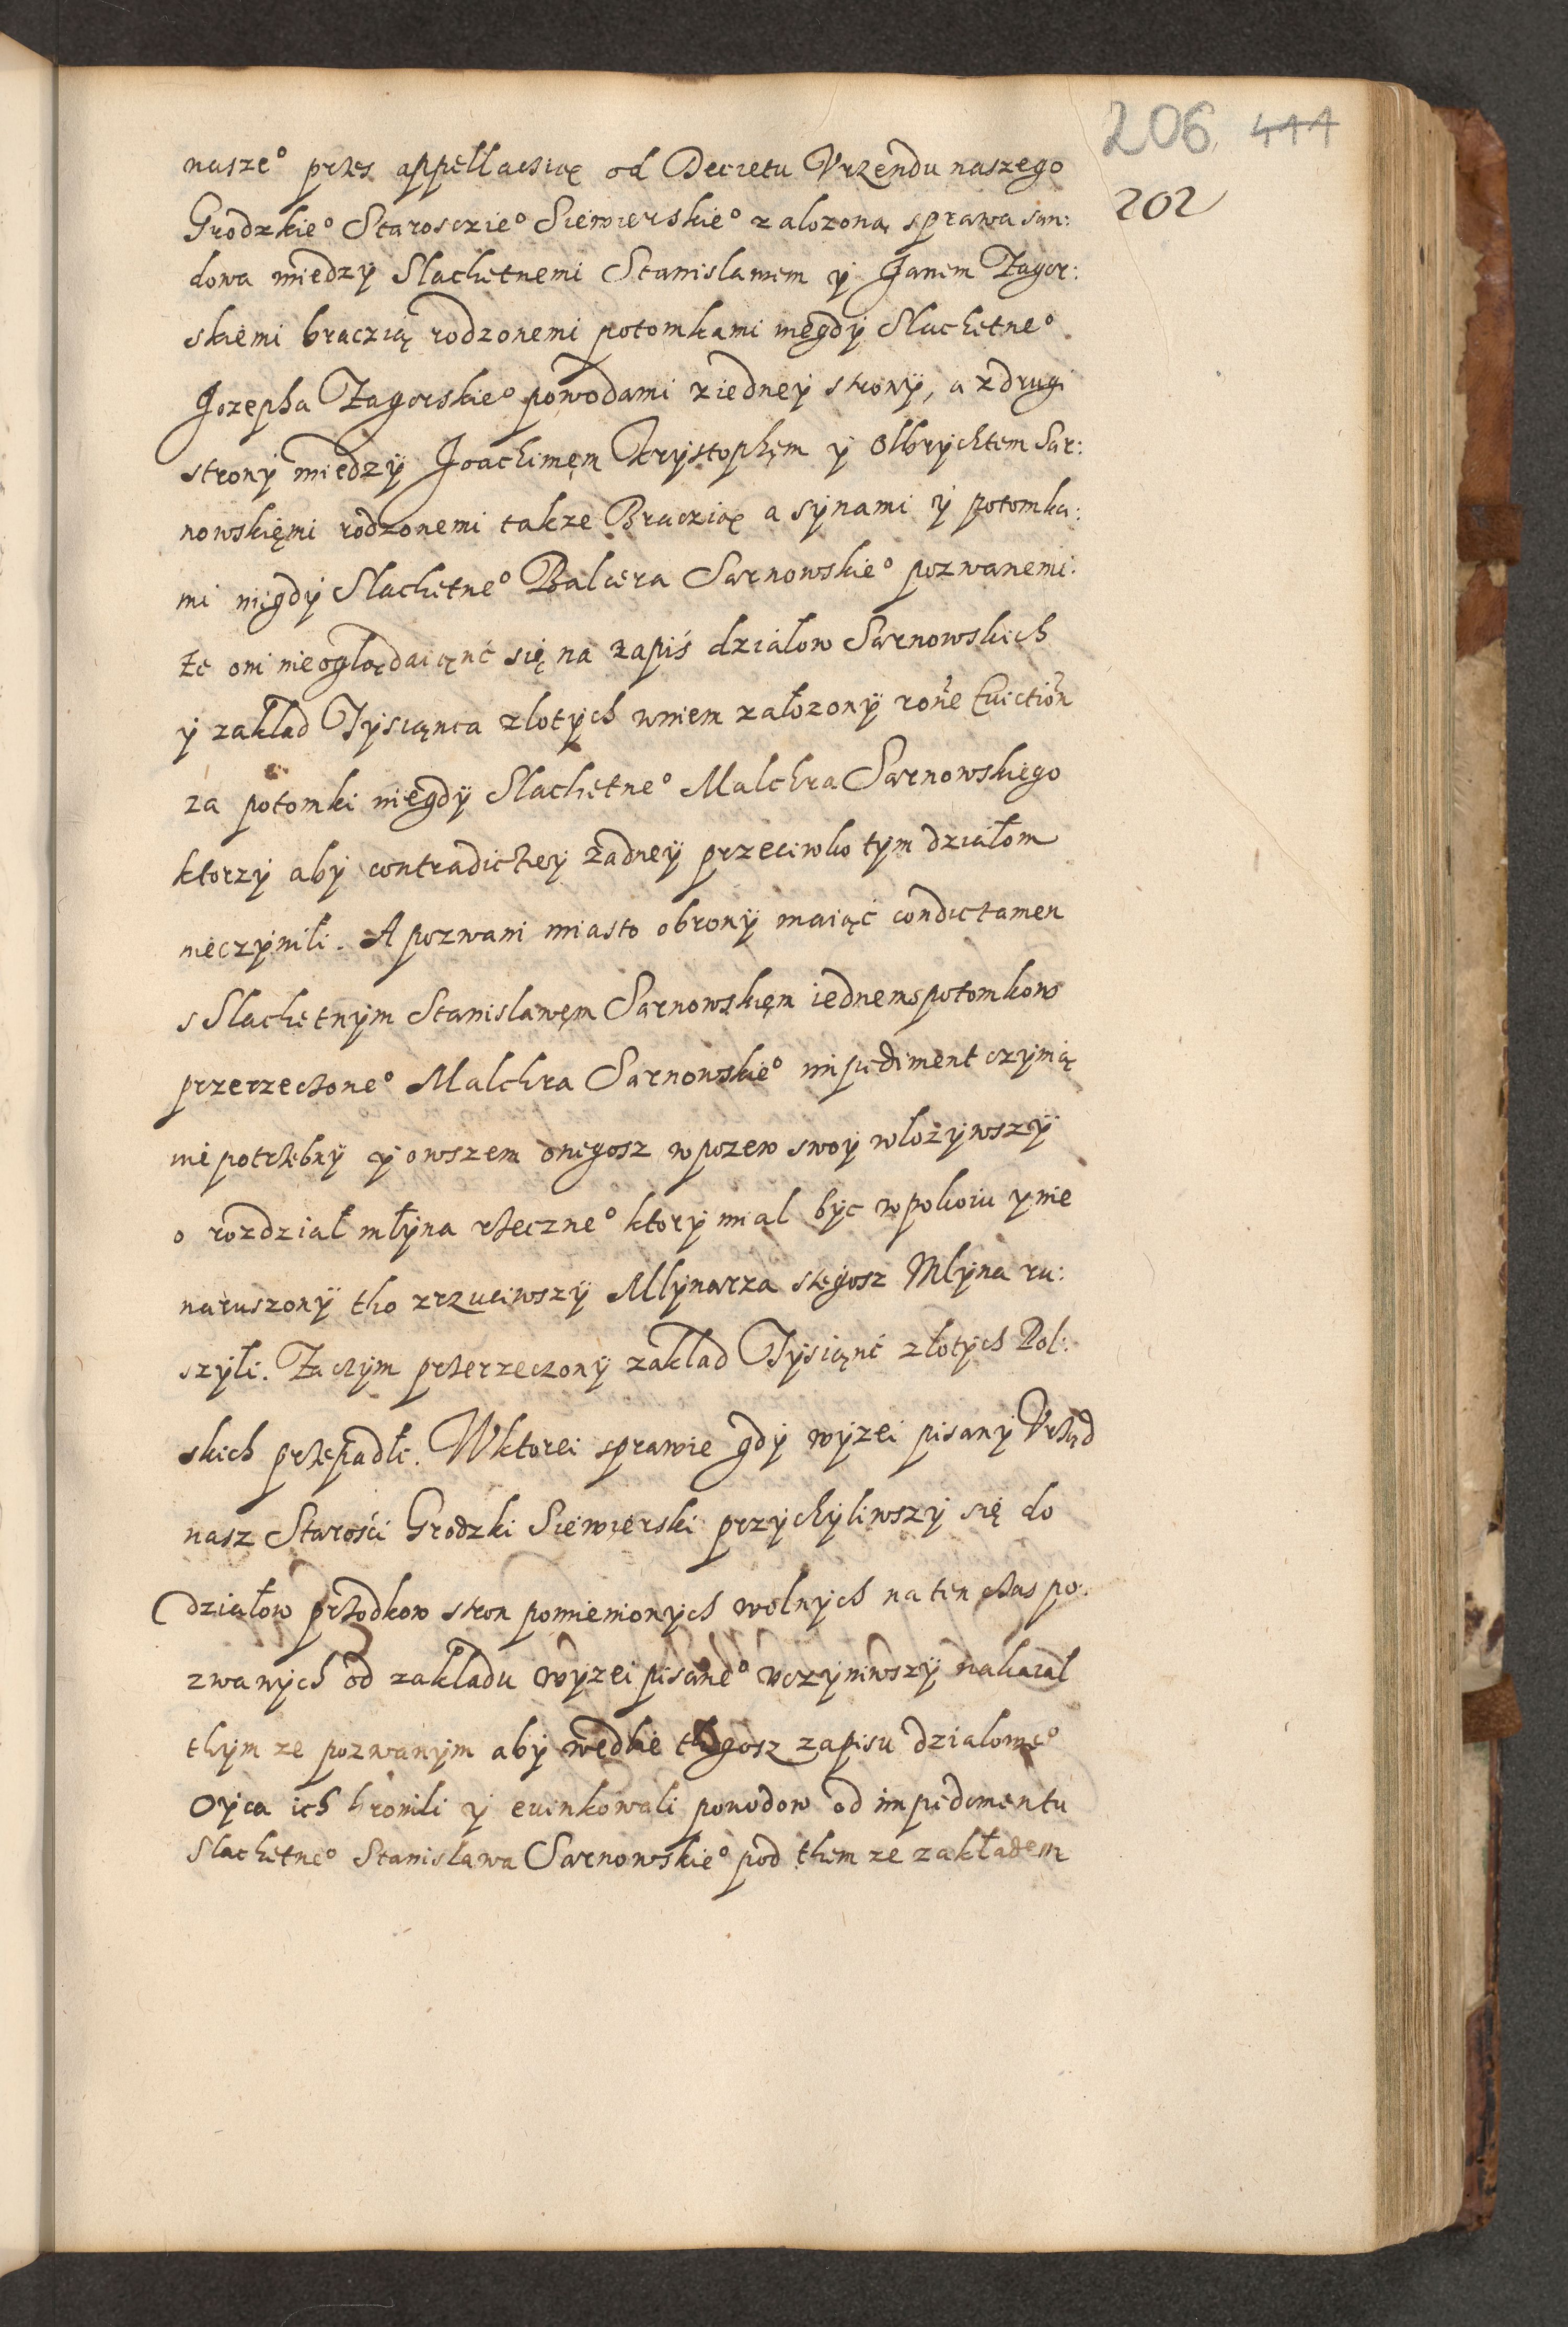 206 444
202
nasze° przes appellaczią od Decretu Vrzendu naszego
Grodzkie° Starosczie° Siewierskie° zalozoną sprawa san:
dowa miedzÿ Slachetnemi Stanislawem ÿ Janem Zagor:
skiemi braczią rodzonemi potomkami niegdÿ Slachetne°
Jozepha Zagorskie° powodami ziedneÿ stronÿ, a zdrugi
stronÿ miedzÿ Joachimęm Krÿstophęm ÿ Olbrÿchtem Sar:
nowskięmi rodzonemi takze Braczią a sÿnami ÿ potomka:
mi niegdÿ Slachetne° Balcera Sarnowskie° pozwanemi:
że oni nieoglądaiąnć się na zapiś działow Sarnowskich
ÿ zakład Tÿsiąnca zlotÿch wniem założonÿ rone Euiction
za potomki niegdÿ Slachetne° Malchra Sarnowskiego
ktorzÿ abÿ contradictieÿ żadneÿ przeciwko tÿm działom
nieczÿnili. A pozwani miasto obronÿ maiąć condictamen
s Slachetnÿm Stanislawęm Sarnowskięm iednemspotomkow
przerzeczone° Malchra Sarnowskie° impediment czÿnią
niepotrzebnÿ ÿ owszem onegosz wpozew swoÿ wlożÿwszÿ
o rozdział młÿna rzeczne° ktorÿ mial bÿc wpokoiu ÿ nie
naruszonÿ tho zrzuciwszÿ Mlÿnarza stegosz Mlÿna ru:
szÿłi. Za czÿm przerzeczonÿ zakład Tÿsiąnć złotÿch Pol:
skich przepadli. Wktorei sprawie gdÿ wÿzei pisanÿ Vrząd
nasz Starośći Grodzki Siewierski przÿchÿliwszÿ się do
działow przodkow stron pomienionÿch wolnÿch na ten czas po:
zwanÿch od zakładu wÿzei pisane° vczÿniwszÿ nakazał
thÿm ze pozwanÿm abÿ wedlie thegosz zapisu dzialowe°
Oÿca ich bronili ÿ euinkowali powodow od impedimentu
Slachetne° Stanisława Sarnowskie° pod them ze zakładem